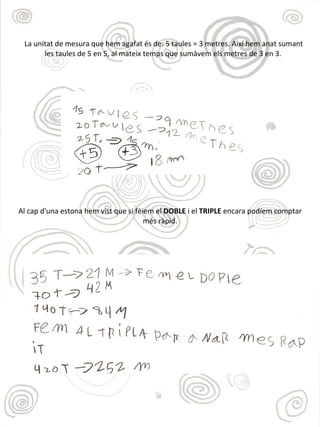 La unitat de mesura que hem agafat és de: 5 taules = 3 metres. Així hem anat sumant
les taules de 5 en 5, al mateix temps que sumàvem els metres de 3 en 3.
15 TAULES -> 9 METRES
20 TAULES -> 12 METRES
25 T. -> 15 m.
+5 +3
20 T -> 18 m
Al cap d'una estona hem vist que si fèiem el DOBLE i el TRIPLE encara podíem comptar
més ràpid.
35 T -> 21 M -> FEM EL DOPLE
70 t -> 42 M
140 T -> 84 M
FEM AL TRIPLA PAR A NAR MES RAP
iT
420 T -> 252 m